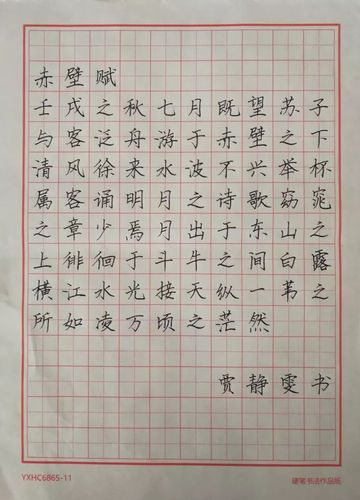 赤壁赋
壬戌之秋七月既望苏子
与客泛舟游于赤壁之下
清风徐来水波不兴举杯
属客诵明月之诗歌窈窕
之章少焉月出于东山之
上徘徊于斗牛之间白露
横江水光接天纵一苇之
所如凌万顷之茫然
贾静雯书
YXHC6865-11
硬笔书法作品纸